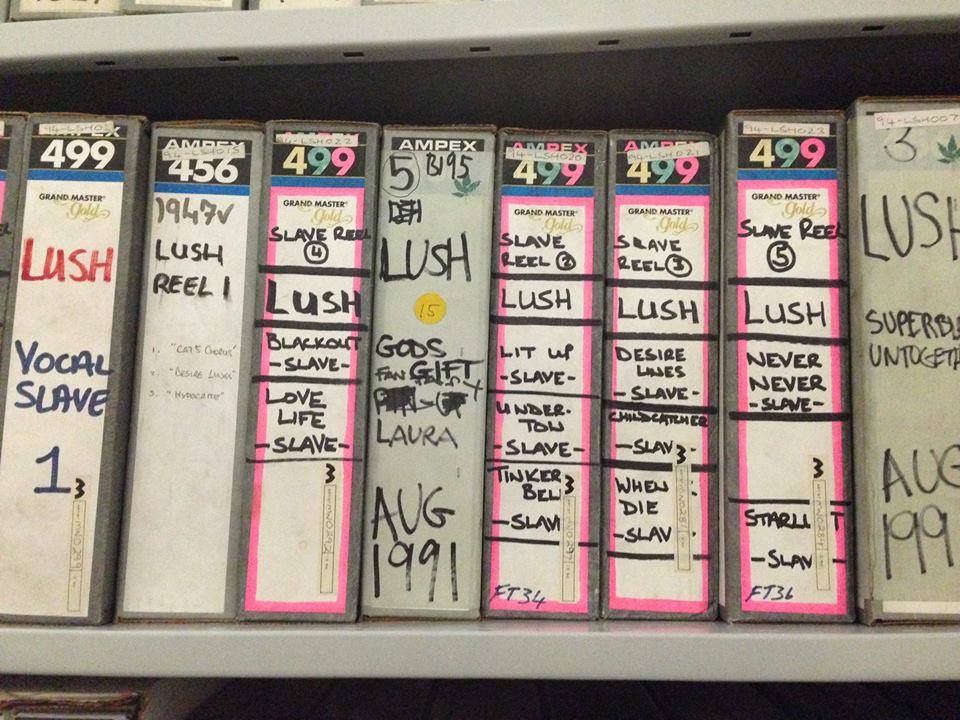 AMPEX
499
GRAND MASTER
Gold
LUSH
VOCAL
SLAVE
1
3
AMPEX
94-LSH015
456
1947V
LUSH
REEL 1
1. "CAT'S CHORUS"
2. "DESIRE LINES"
3. "HYPOCRITE"
AMPEX
94-LSH022
499
GRAND MASTER
Gold
SLAVE REEL
4
LUSH
BLACKOUT
-SLAVE-
LOVE
LIFE
-SLAVE-
3
AMPEX
5 B195
LUSH
15
GODS
FAN
GIFT
LAURA
AUG
1991
AMPEX
94-LSH020
499
GRAND MASTER
Gold
SLAVE
REEL 2
LUSH
LIT UP
-SLAVE-
UNDER-
TOW
-SLAVE-
TINKER
BEL
3
-SLAV
FT34
AMPEX
94-LSH021
499
GRAND MASTER
Gold
SLAVE
REEL 3
LUSH
DESIRE
LINES
-SLAVE-
CHILDCATCHER
-SLAV -
3
WHEN
DIE
-SLAV
94-LSH023
499
GRAND MASTER
Gold
SLAVE REEL
5
LUSH
NEVER
NEVER
-SLAVE-
3
STARL T
-SLAV
FT36
94-LSH007
3
LUSH
SUPERBL
UNTOGETH
AUG
199